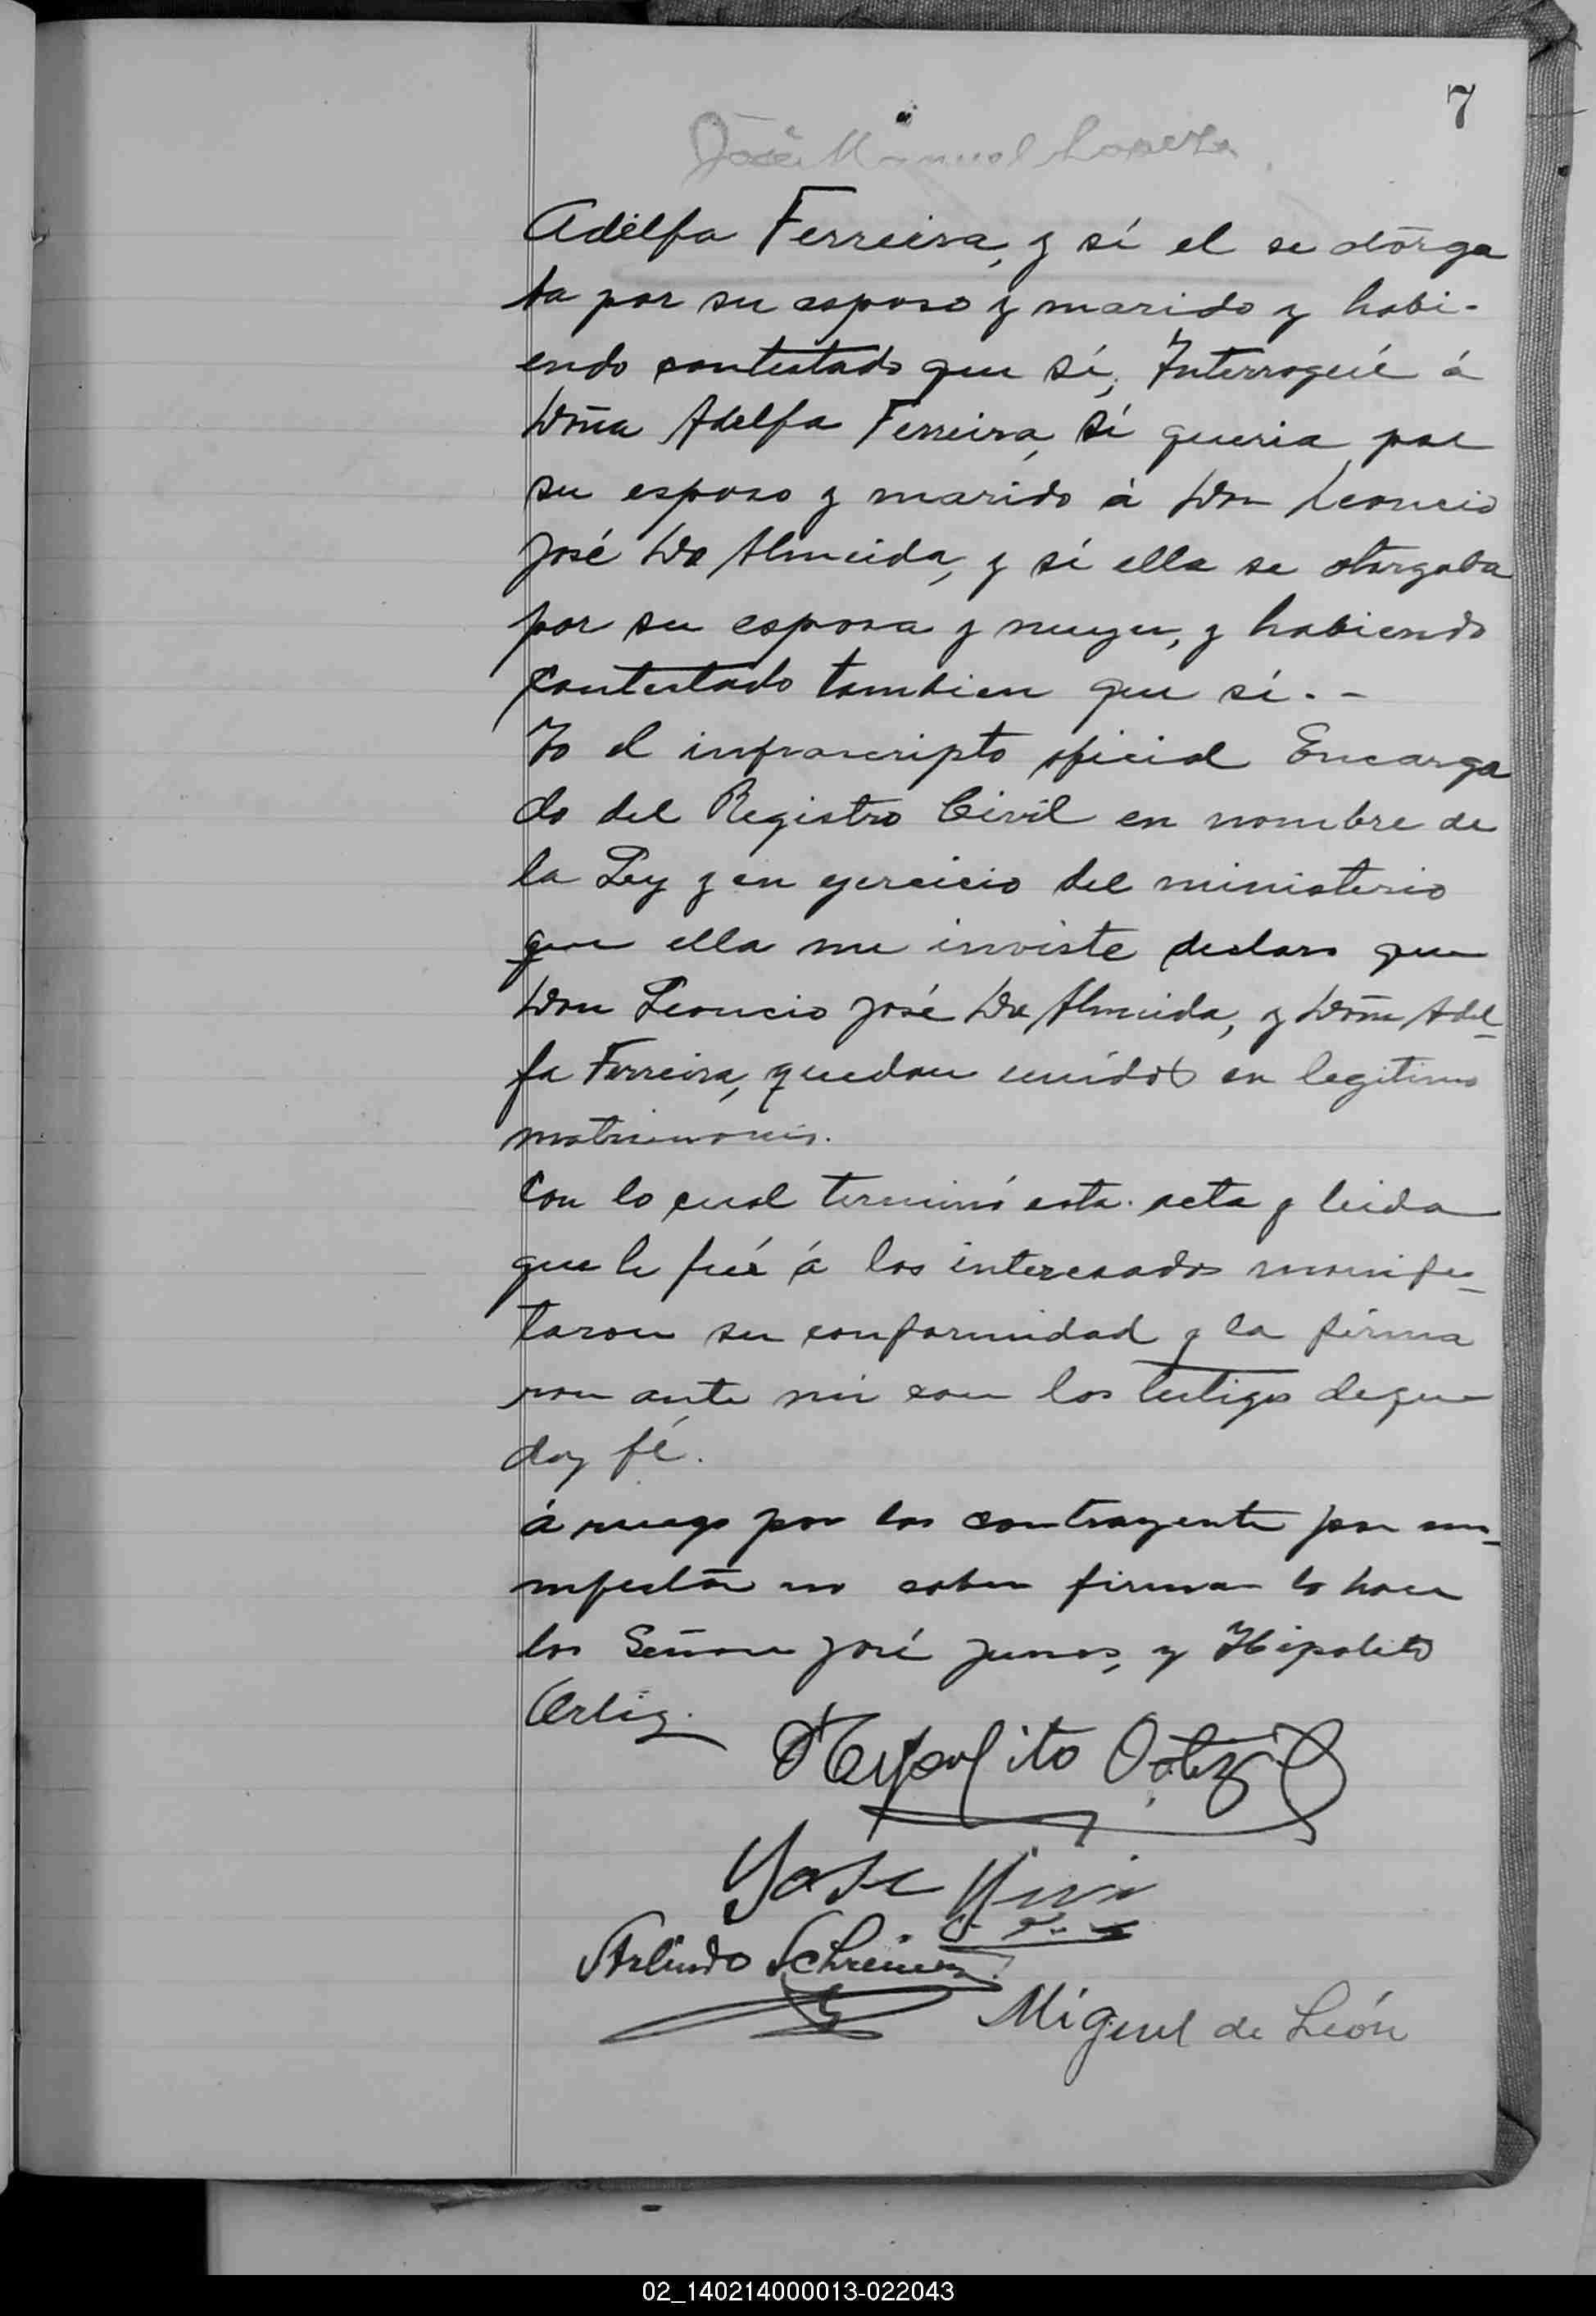 7
José Manuel Lopez
Adelfa Ferreira, y sí el se otorga
ba por su esposo y marido y habi-
endo contestado que sí, Interrogué á
Dõna Adelfa Ferreira, sí queria por
su esposo y marido á Don Leoncio
José De Almeida, y sí ella se otorgaba
por su esposa y muger, y habiendo
contestado tambien que sí. -
Yo el infrascripto oficial Encarga
do del Registro Civil en nombre de
la Ley y en ejercicio del ministerio
que ella me inviste declaro que
Don Leoncio José De Almeida, y Dõna Adel-
fa Ferreira, quedan unidos en legitimo
matrimonio.
Con lo cual terminó esta acta y leida
que le fué á los interesados manifes-
taron su conformidad y la firma
ron ante mi con los testigos de que
doy fé.
á ruego por los contrayente por ma-
nifestar no saber firmar lo hacen
los Señores José y Hipolito
Ortiz.
Hypolito Ortiz
José
Arlindo Schreiner
Miguel de León
02_140214000013-022043